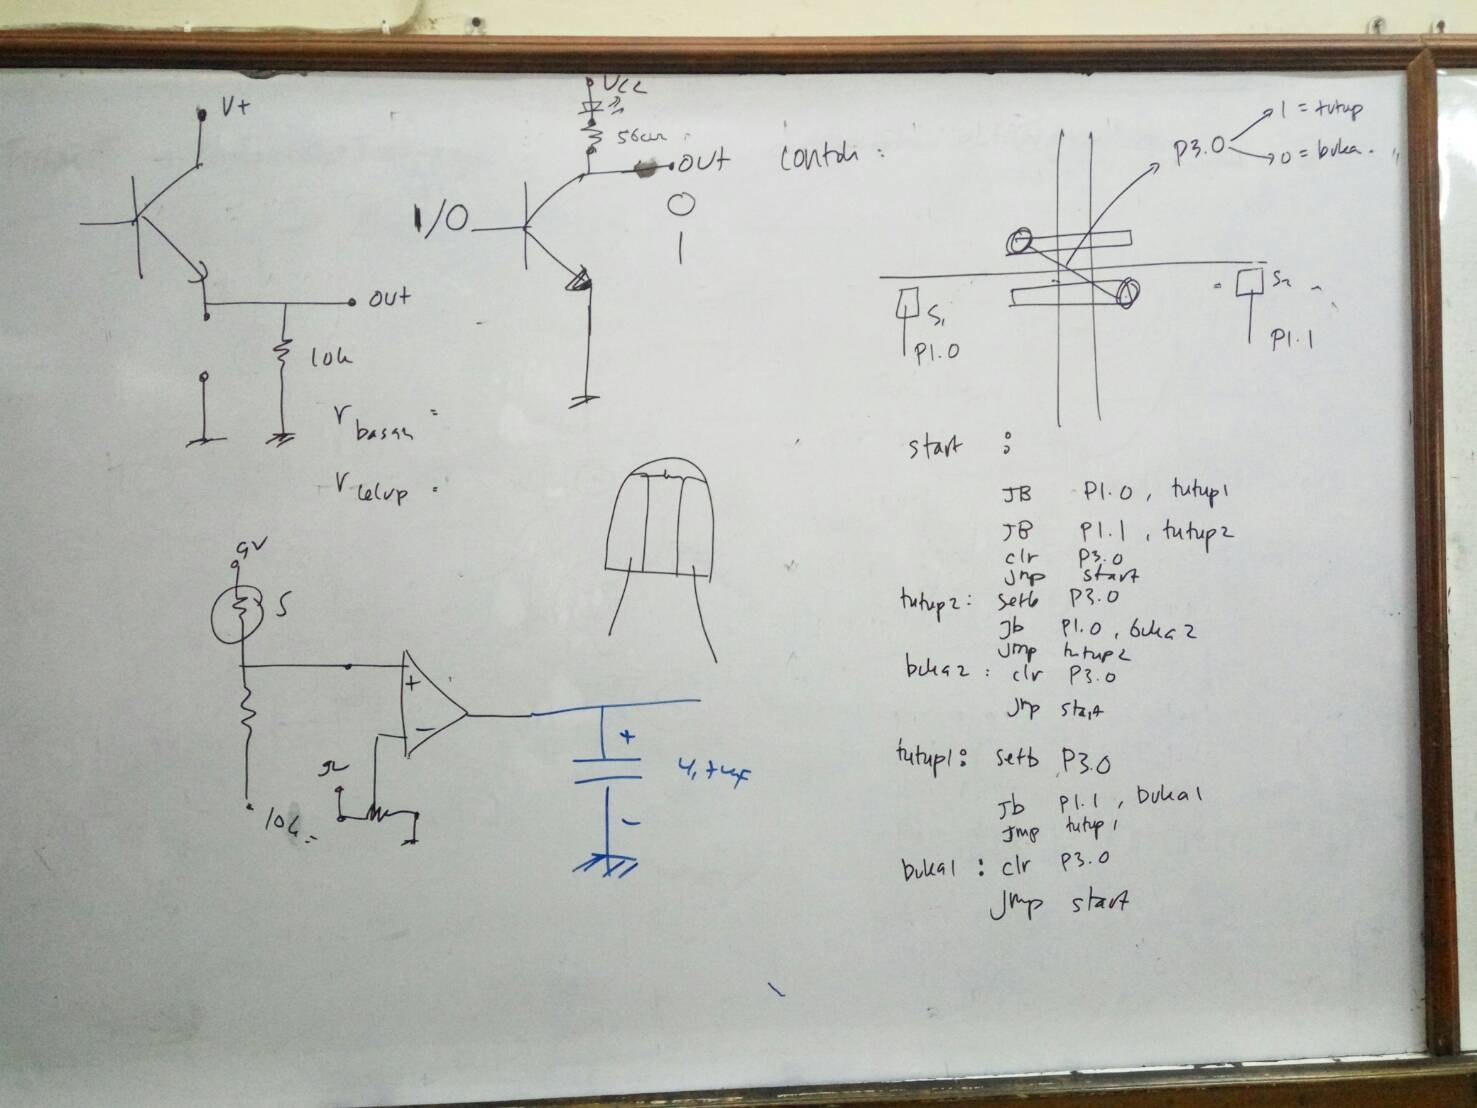 V+
out
10k
Vcc
560r
1/0
out
0
1
Contoh :
P3.0
1 = tutup
0 = buka
S1
P1.0
S2
P1.1
start :
JB P1.0, tutup1
JB P1.1, tutup2
clr P3.0
jmp start
tutup2: setb P3.0
Jb P1.0, buka2
jmp tutup2
buka2 : clr P3.0
jmp start
tutup1: setb P3.0
Jb P1.1, buka1
Jmp tutup1
buka1 : clr P3.0
jmp start
9V
S
+
-
10k
+
-